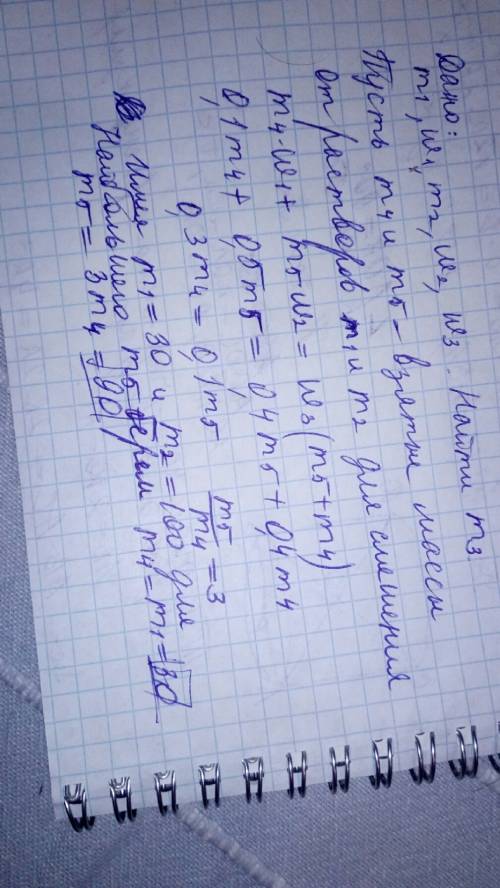 Дано:
m1, w1, m2, w2, w3. Найти m3
Пусть m4 и m5 - взятые массы
от растворов m1 и m2 для смешения
m4·w1 + m5·w2 = w3(m5+m4)
0,1m4 + 0,5m5 = 0,4m5 + 0,4m4
0,3m4 = 0,1m5 m5/m4 = 3
Имея m1 = 30 и m2 = 100 для
наибольшего m5 берем m4 = m1 = 30
m5 = 3m4 = 90